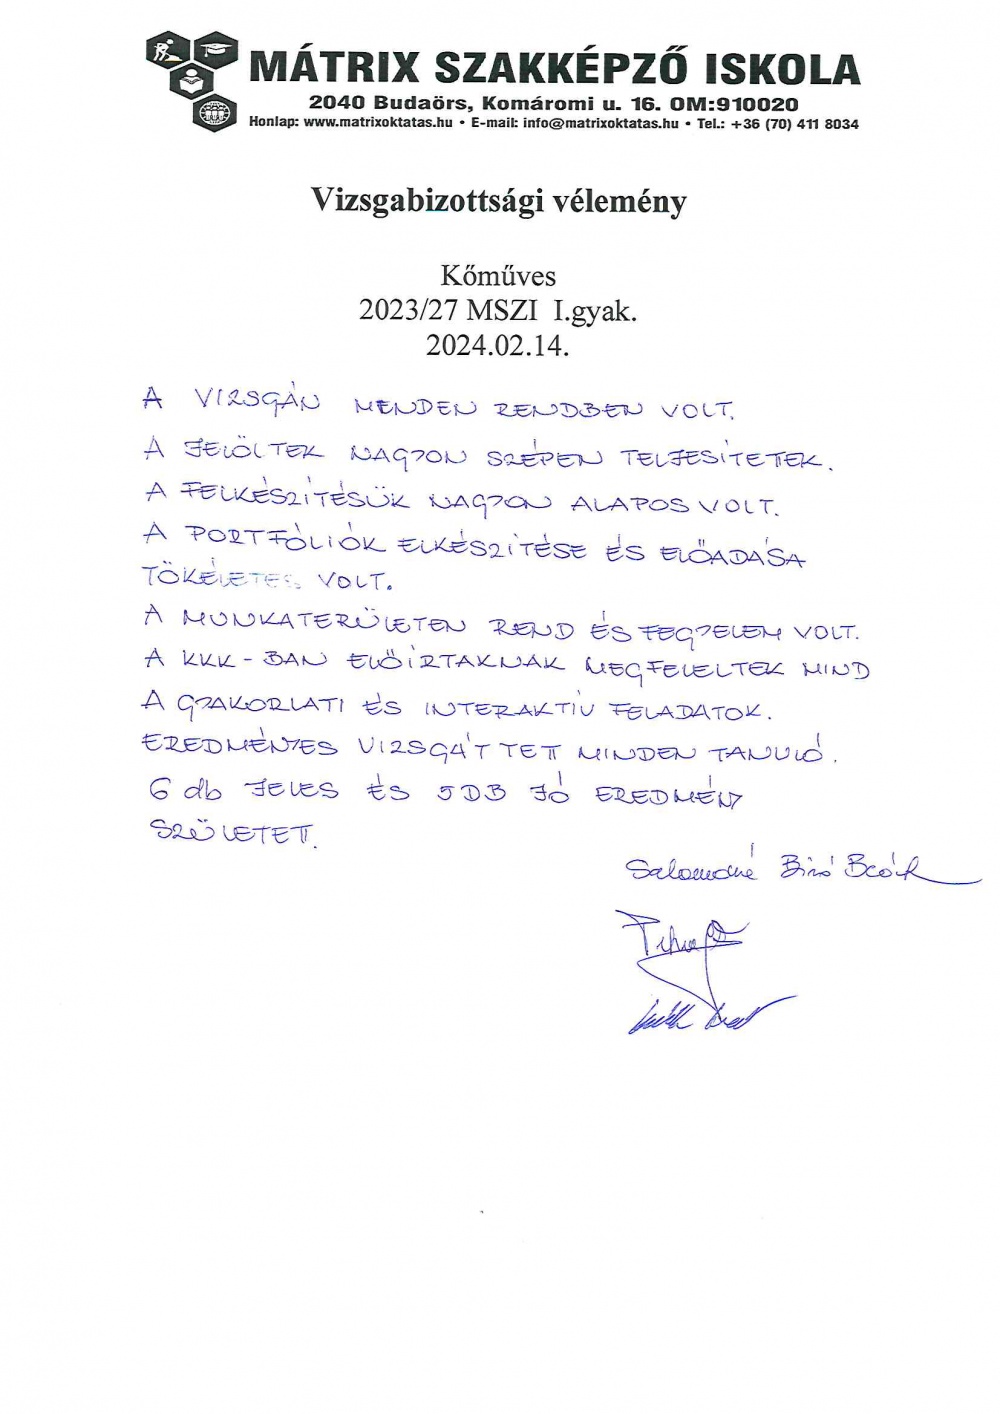 MÁTRIX SZAKKÉPZŐ ISKOLA
2040 Budaörs, Komáromi u. 16. OM:910020
Honlap: www.matrixoktatas.hu • E-mail: info@matrixoktatas.hu • Tel.: +36 (70) 411 8034
Vizsgabizottsági vélemény
Kőműves
2023/27 MSZI I.gyak.
2024.02.14.
A VIZSGÁN MENDEN RENDBEN VOLT.
A JELÖLTEK NAGYON SZÉPEN TELJESÍTETEK.
A FELKÉSZÍTÉSÜK NAGYON ALAPOS VOLT.
A PORTFÓLIÓK ELKÉSZÍTÉSE ÉS ELŐADÁSA
TÖKÉLETES VOLT.
A MUNKATERÜLETEN REND ÉS FEGYELEM VOLT.
A KKK-BAN ELŐÍRTAKNAK MEGFELELTEK MIND
A GYAKORLATI ÉS INTERAKTÍV FELADATOK.
EREDMÉNYES VIZSGÁT TETT MINDEN TANULÓ.
6 db JELES ÉS 5DB JÓ EREDMÉNY
SZÜLETETT.
Salamonné Bíró